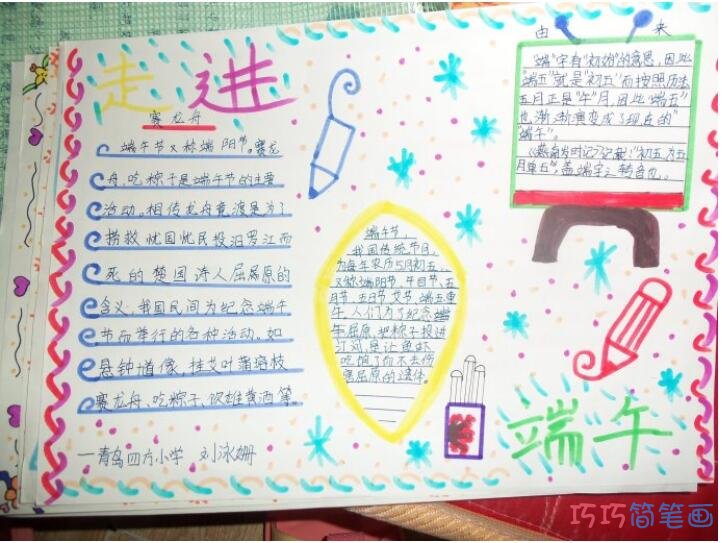 走进
赛龙舟
端午节又称端阳节。赛龙
舟、吃粽子是端午节的主要
活动。相传龙舟竟渡是为了
捞救忧国忧民投汨罗江而
死的楚国诗人屈原的
含义,我国民间为纪念端午
节而举行的各种活动。如
悬钟馗像,挂艾叶菖蒲枝
赛龙舟、吃粽子、饮雄黄酒等
一青岛四方小学 刘泳姗
端午节,
我国传统节日,
为每年农历5月初五,
又称端阳节、午日节、五
月节、五日节、艾节、端五重
午,人们为了纪念端
午屈原,把粽子投进
江河,是让鱼虾
吃饱了而不去伤
害屈原的遗体。
由来
"端"字有"初始"的意思,因此
"端五"就是"初五"而按照历法
五月正是"午"月,因此"端五"
也渐渐演变成了现在的"
端午"。
《燕京岁时记》记载:"初五为五
月单五",盖端字之转音也。
端午
巧巧简笔画